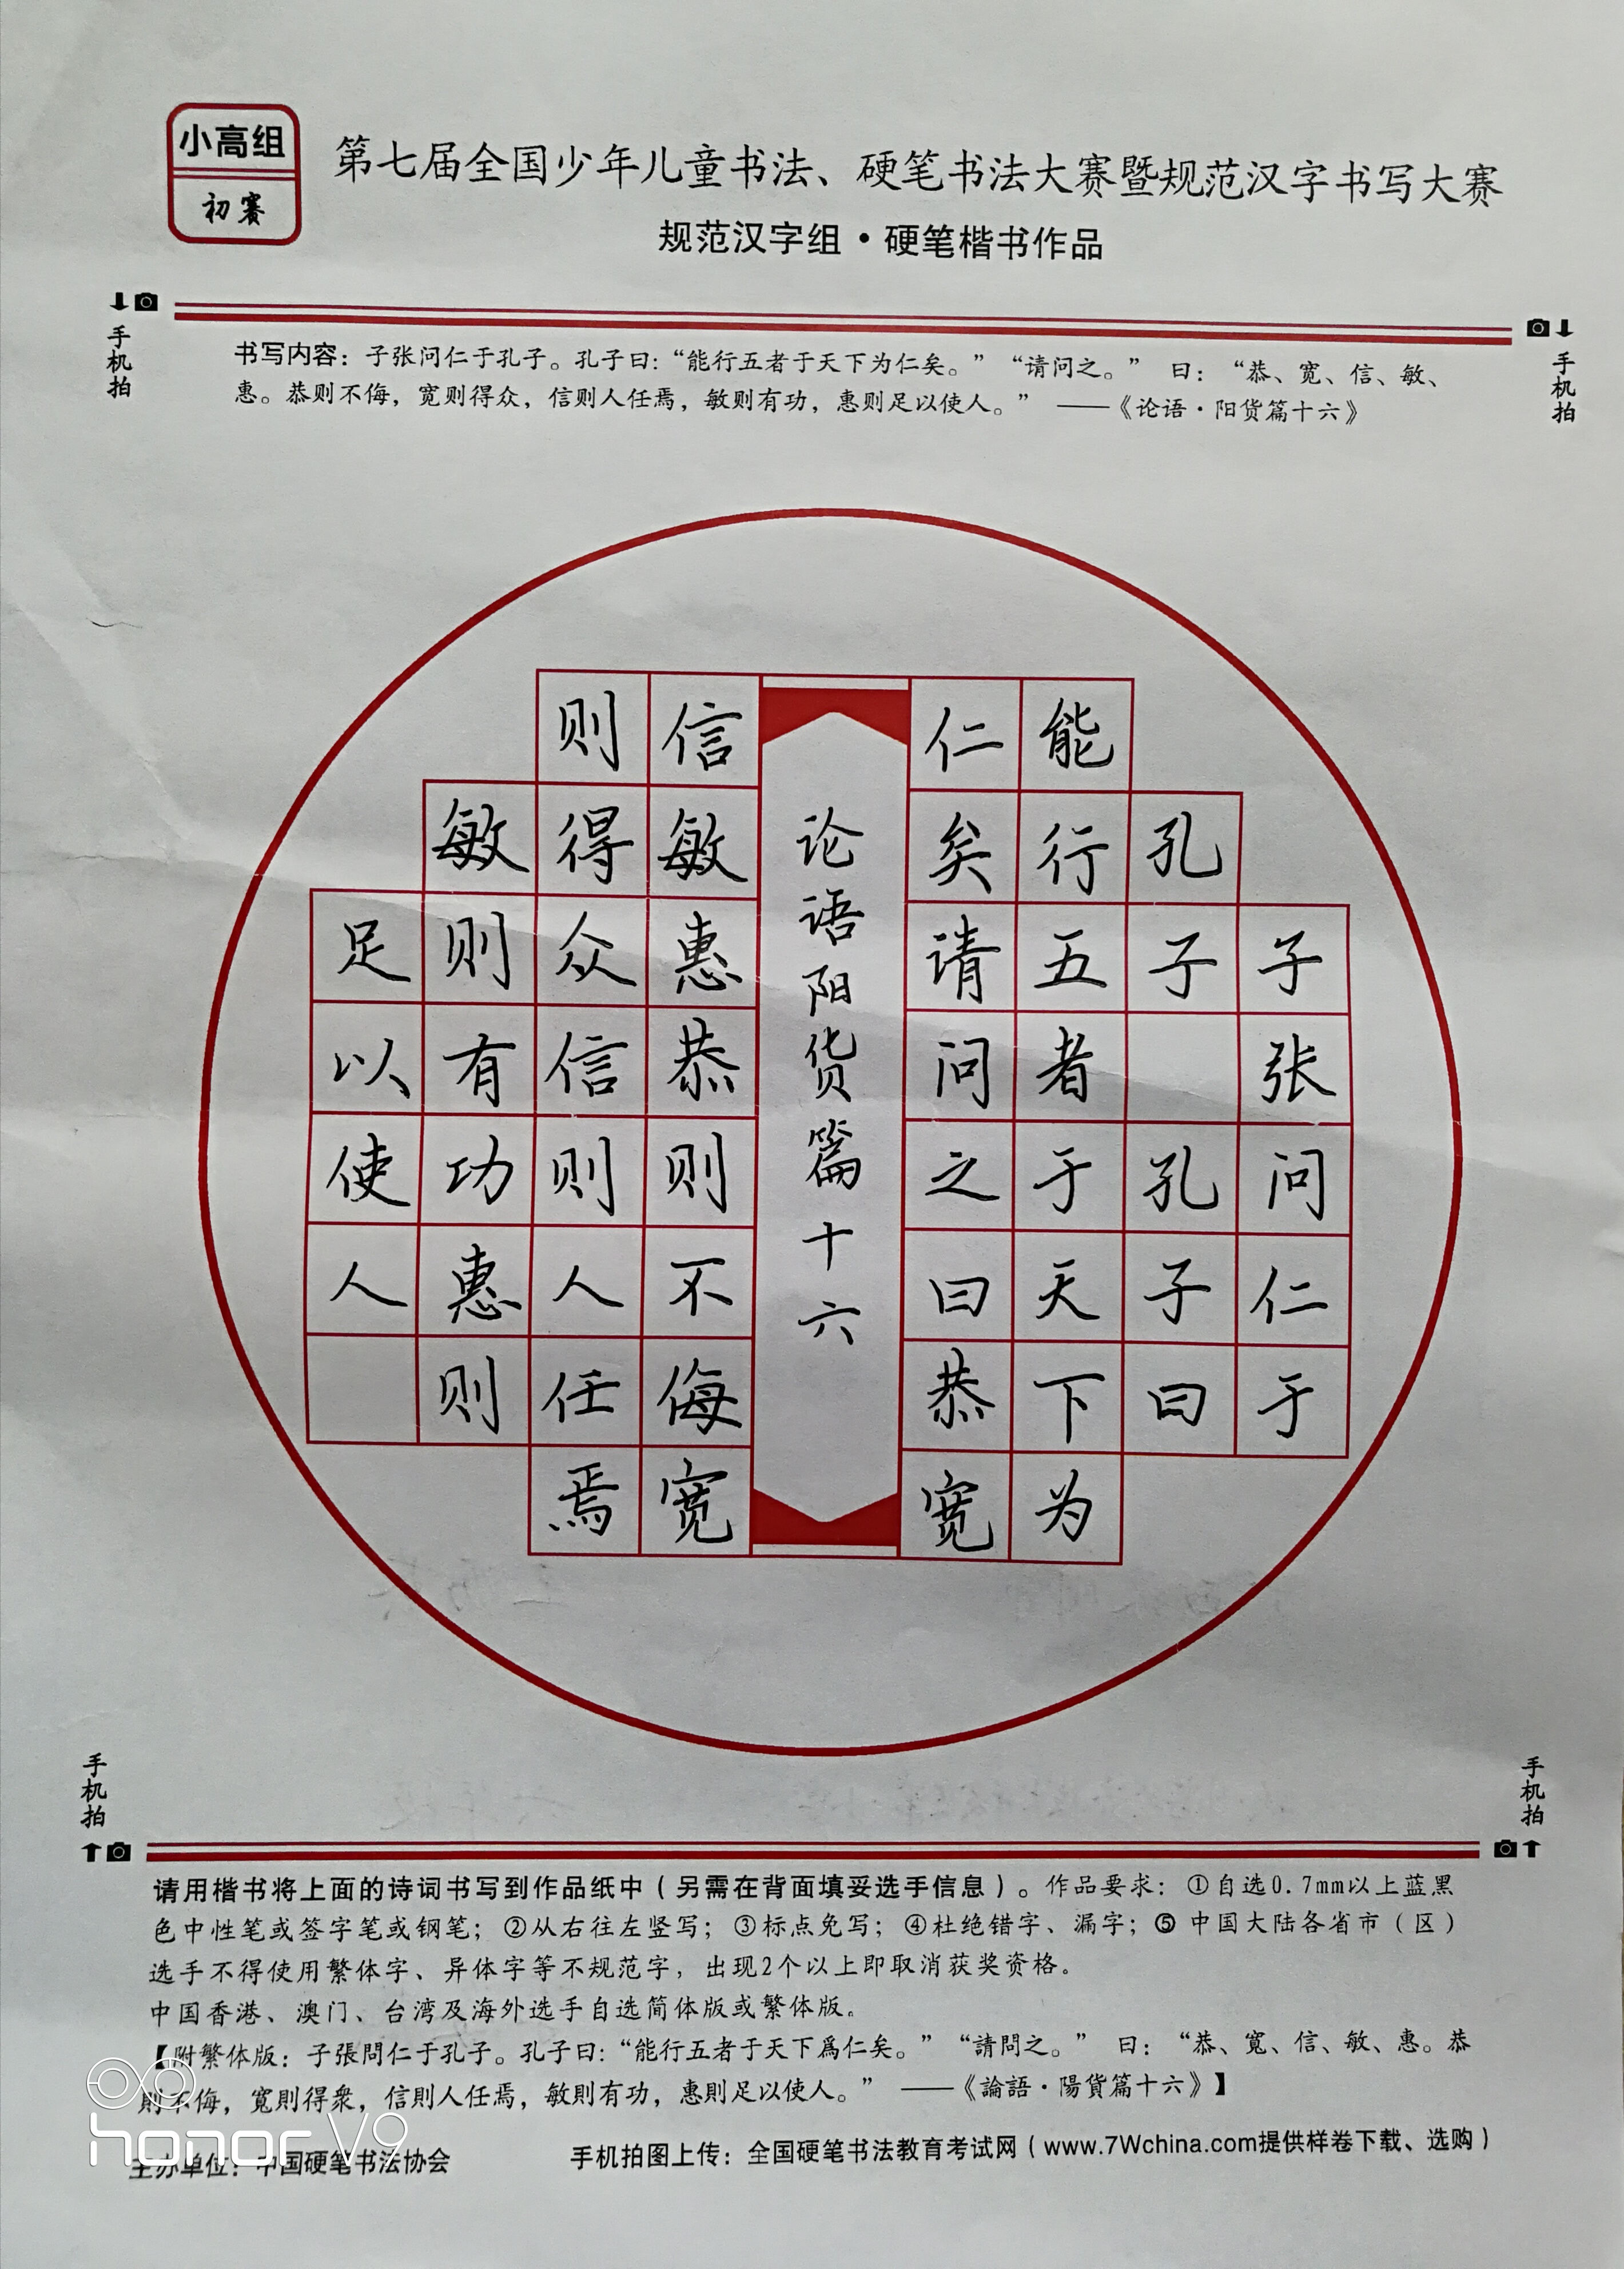 小高组
初赛
第七届全国少年儿童书法、硬笔书法大赛暨规范汉字书写大赛
规范汉字组·硬笔楷书作品
手机拍
手机拍
书写内容：子张问仁于孔子。孔子曰：“能行五者于天下为仁矣。”“请问之。” 曰：“恭、宽、信、敏、
惠。恭则不侮，宽则得众，信则人任焉，敏则有功，惠则足以使人。” ——《论语·阳货篇十六》
子张问仁于
孔子 孔子曰
能行五者于天下为
仁矣请问之曰恭宽
论语阳货篇十六
信敏惠恭则不侮宽
则得众信则人任焉
敏则有功惠则
足以使人
手机拍
手机拍
请用楷书将上面的诗词书写到作品纸中（另需在背面填妥选手信息）。作品要求：①自选0.7mm以上蓝黑
色中性笔或签字笔或钢笔；②从右往左竖写；③标点免写；④杜绝错字、漏字；⑤中国大陆各省市（区）
选手不得使用繁体字、异体字等不规范字，出现2个以上即取消获奖资格。
中国香港、澳门、台湾及海外选手自选简体版或繁体版。
【附繁体版：子張問仁于孔子。孔子曰：“能行五者于天下爲仁矣。”“請問之。” 曰：“恭、寬、信、敏、惠。恭
則不侮，寬則得衆，信則人任焉，敏則有功，惠則足以使人。” ——《論語·陽貨篇十六》】
主办单位：中国硬笔书法协会
手机拍图上传：全国硬笔书法教育考试网（www.7Wchina.com提供样卷下载、选购）
honor V9